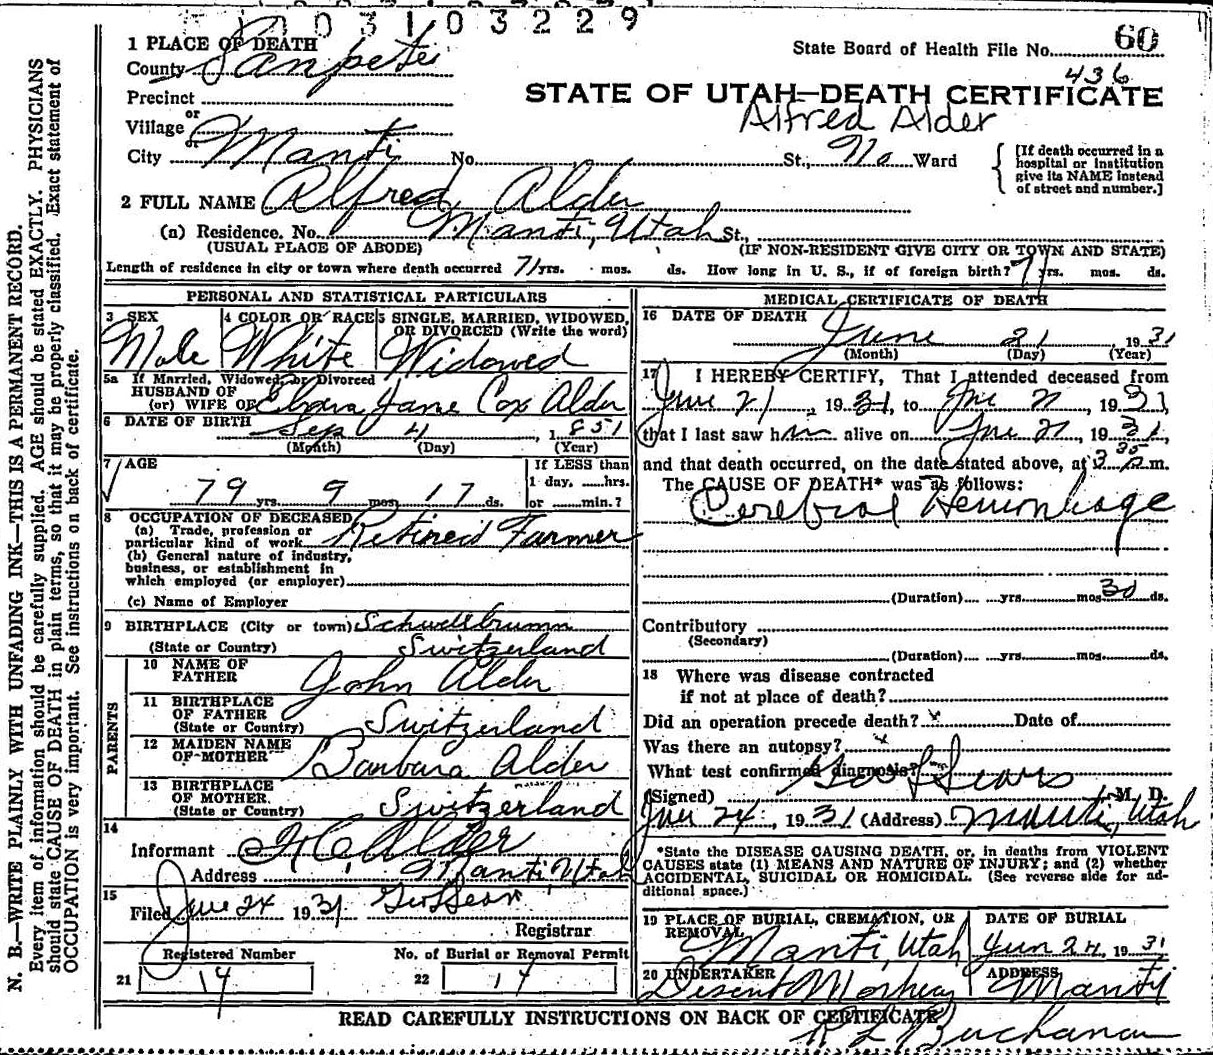 0 3 1 0 3 2 2 9
60
State Board of Health File No.
436
1 PLACE OF DEATH
County Sanpete
STATE OF UTAH—DEATH CERTIFICATE
Precinct
Alfred Alder
or
Village
or
City Manti No. St., No Ward
[If death occurred in a hospital or institution give its NAME instead of street and number.]
2 FULL NAME Alfred Alder
(a) Residence. No. Manti, Utah St.,
(USUAL PLACE OF ABODE) (IF NON-RESIDENT GIVE CITY OR TOWN AND STATE)
Length of residence in city or town where death occurred 71 yrs. mos. ds. How long in U. S., if of foreign birth? yrs. mos. ds.
PERSONAL AND STATISTICAL PARTICULARS
3 SEX
Male
4 COLOR OR RACE
White
5 SINGLE, MARRIED, WIDOWED, OR DIVORCED (Write the word)
Widowed
5a If Married, Widowed, or Divorced
HUSBAND OF
(or) WIFE OF Jane Cox Alder
6 DATE OF BIRTH
Sep 4, 1851
(Month) (Day) (Year)
7 AGE
79 yrs. 9 mos. 17 ds.
If LESS than
1 day, hrs.
or min.?
8 OCCUPATION OF DECEASED
(a) Trade, profession or
particular kind of work Retired Farmer
(b) General nature of industry,
business, or establishment in
which employed (or employer)
(c) Name of Employer
9 BIRTHPLACE (City or town)
(State or Country) Switzerland
PARENTS
10 NAME OF
FATHER John Alder
11 BIRTHPLACE
OF FATHER
(State or Country) Switzerland
12 MAIDEN NAME
OF MOTHER Barbara Alder
13 BIRTHPLACE
OF MOTHER.
(State or Country) Switzerland
14
Informant Alder
Address Manti, Utah
15
Filed June 24 1931
Registrar
Registered Number
21 14
No. of Burial or Removal Permit
22 14
MEDICAL CERTIFICATE OF DEATH
16 DATE OF DEATH
June 21 1931
(Month) (Day) (Year)
17 I HEREBY CERTIFY, That I attended deceased from
June 21, 1931, to June 21, 1931,
that I last saw him alive on June 21, 1931,
and that death occurred, on the date stated above, at 3 35 m.
The CAUSE OF DEATH* was as follows:
Cerebral Hemorrhage
(Duration) yrs. mos. 30 ds.
Contributory
(Secondary)
(Duration) yrs. mos. ds.
18 Where was disease contracted
if not at place of death?
Did an operation precede death? x Date of
Was there an autopsy? x
What test confirmed diagnosis?
(Signed) Geo L Sears M. D.
June 24, 1931 (Address) Manti, Utah
*State the DISEASE CAUSING DEATH, or, in deaths from VIOLENT
CAUSES state (1) MEANS AND NATURE OF INJURY; and (2) whether
ACCIDENTAL, SUICIDAL OR HOMICIDAL. (See reverse side for ad-
ditional space.)
19 PLACE OF BURIAL, CREMATION, OR
REMOVAL
Manti, Utah
DATE OF BURIAL
Jun 24, 1931
20 UNDERTAKER
ADDRESS
Manti
READ CAREFULLY INSTRUCTIONS ON BACK OF CERTIFICATE
R L Buchanan
N. B.—WRITE PLAINLY WITH UNFADING INK—THIS IS A PERMANENT RECORD.
Every item of information should be carefully supplied. AGE should be stated EXACTLY. PHYSICIANS
should state CAUSE OF DEATH in plain terms, so that it may be properly classified. Exact statement of
OCCUPATION is very important. See instructions on back of certificate.